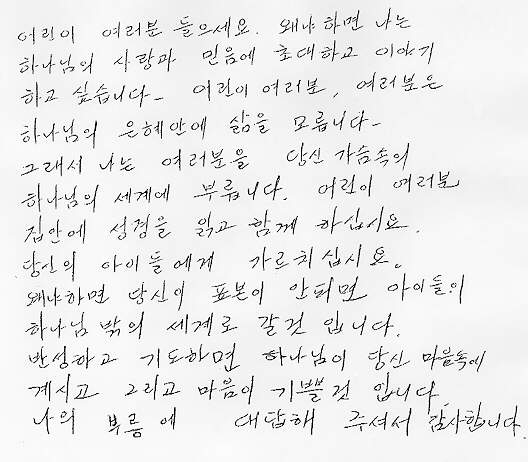 어린이 여러분 들으세요. 왜냐하면 나는
하나님의 사랑과 믿음에 초대하고 이야기
하고 싶습니다. 어린이 여러분, 여러분은
하나님의 은혜안에 삶을 모릅니다.
그래서 나는 여러분을 당신 가슴속의
하나님의 세계에 부릅니다. 어린이 여러분
집안에 성경을 읽고 함께 하십시요.
당신의 아이들에게 가르치십시요.
왜냐하면 당신의 표본이 안되면 아이들이
하나님 밖의 세계로 갈것 입니다.
반성하고 기도하면 하나님이 당신 마음속에
계시고 그리고 마음이 기쁠것 입니다.
나의 부름에 대답해 주셔서 감사합니다.